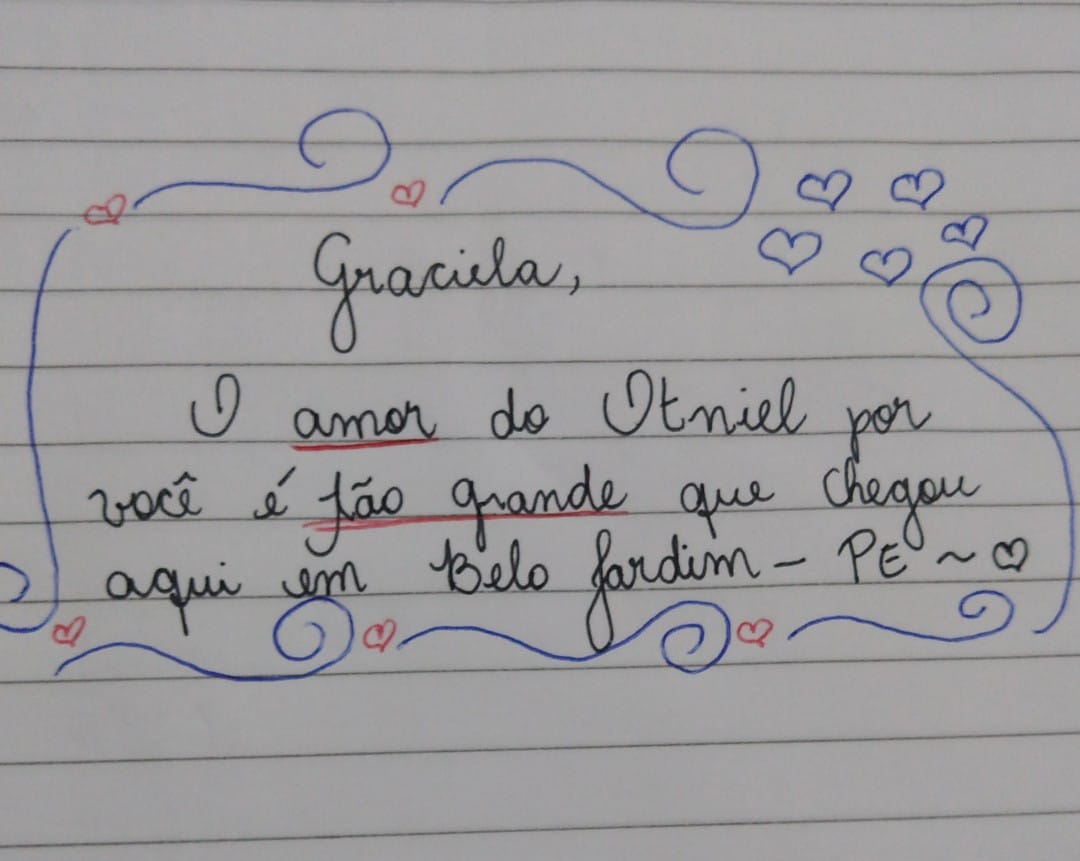 Graciela,
O amor do Otniel por
você é tão grande que chegou
aqui em Belo Jardim - PE ~ ♡